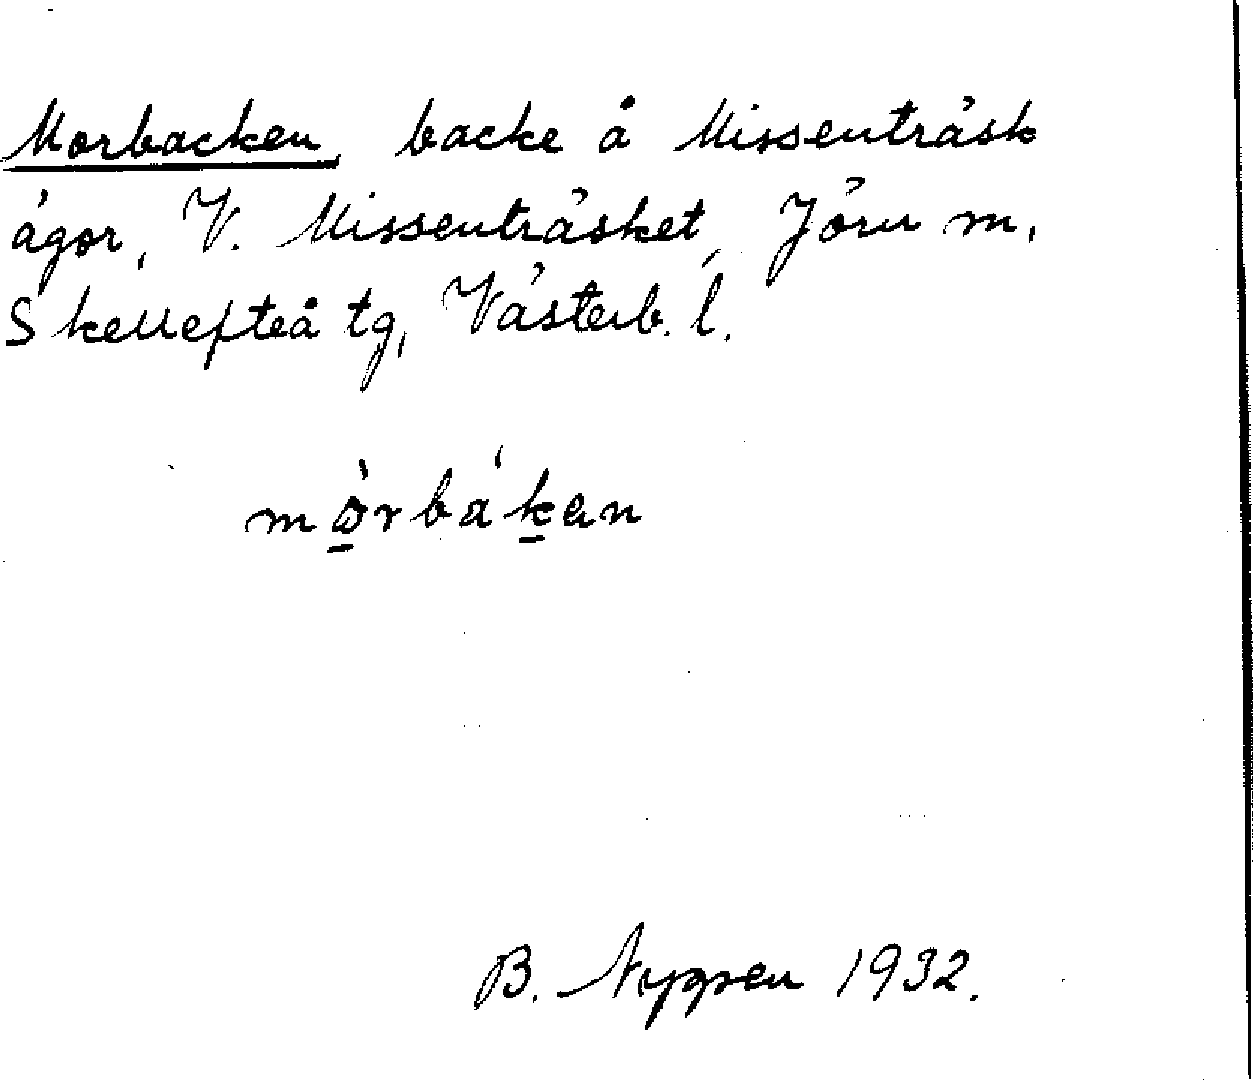 Morbacken, backe å Missenträsk
ägor, V. Missenträsket, Jörn m.
Skellefteå tg, Västerb. l.
mòrbákan
B. Nygren 1932.